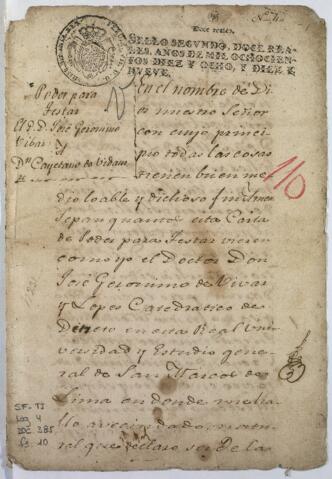 Doce reales.
SELLO SEGVNDO, DOCE REA-
LES, AÑOS DE MIL OCHOCIEN-
TOS DIEZ Y OCHO, Y DIEZ Y
NVEVE.
Poder para
Testar
El D. D. José Geronimo
Vibar
Y
Dn. Cayetano de Vidau
En el nombre de Di
os nuestro Señor
con cuyo princi
pio todas las cosas
tienen buen me
dio loable y dichoso fin. Amen
Sepan quantos esta Carta
de Poder para Testar vieren
como yo el Doctor Don
José Geronimo de Vivar
y Lopes Catedratico de
Decreto en esta Real Uni
versidad y Estudio gene
ral de San Marcos de
Lima en donde me ha
llo avecindado, natu
ral que declaro ser de la
110
SF-TI
Leg 4
DOC 385
fs. 10